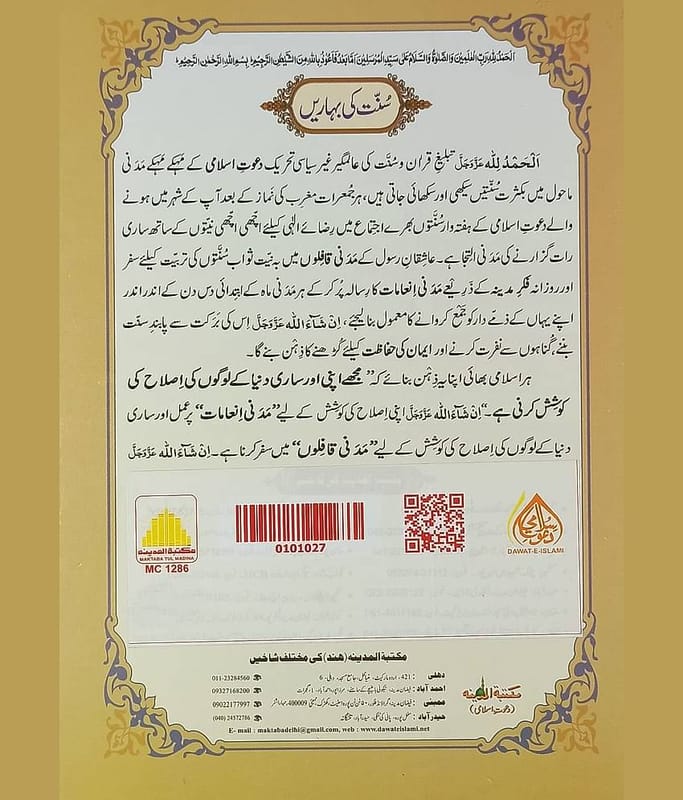 اَلْحَمْدُ لِلّٰہِ رَبِّ الْعٰلَمِیْنَ وَالصَّلٰوۃُ وَالسَّلَامُ عَلٰی سَیِّدِ الْمُرْسَلِیْنَ اَمَّا بَعْدُ فَاَعُوْذُ بِاللّٰہِ مِنَ الشَّیْطٰنِ الرَّجِیْمِ بِسْمِ اللّٰہِ الرَّحْمٰنِ الرَّحِیْمِ
سُنّت کی بہاریں
اَلْحَمْدُ لِلّٰہ عَزَّوَجَلَّ تبلیغِ قران و سُنّت کی عالمگیر غیر سیاسی تحریک دعوتِ اسلامی کے مہکے مہکے مَدَنی
ماحول میں بکثرت سُنّتیں سیکھی اور سکھائی جاتی ہیں، ہر جُمعرات مغرِب کی نَماز کے بعد آپ کے شہر میں ہونے
والے دعوتِ اسلامی کے ہفتہ وار سُنّتوں بھرے اجتماع میں رضائے الٰہی کیلئے اچّھی اچّھی نیّتوں کے ساتھ ساری
رات گزارنے کی مَدَنی التجا ہے۔ عاشقانِ رسول کے مَدَنی قافِلوں میں بہ نیت ثواب سُنّتوں کی تربیت کیلئے سفر
اور روزانہ فکرِ مدینہ کے ذریعے مَدَنی اِنعامات کا رسالہ پُر کر کے ہر مَدَنی ماہ کے ابتدائی دس دن کے اندر اندر
اپنے یہاں کے ذمّے دار کو جَمْعْ کروانے کا معمول بنا لیجئے، اِنْ شَآءَ اللّٰہ عَزَّوَجَلَّ اِس کی بَرَکت سے پابندِ سنّت
بننے، گناہوں سے نفرت کرنے اور ایمان کی حفاظت کیلئے کُڑھنے کا ذِہْن بنے گا۔
ہر اسلامی بھائی اپنا یہ ذِہْن بنائے کہ "مجھے اپنی اور ساری دنیا کے لوگوں کی اِصلاح کی
کوشش کرنی ہے۔" اِنْ شَآءَ اللّٰہ عَزَّوَجَلَّ اپنی اِصلاح کی کوشش کے لیے "مَدَنی اِنعامات" پر عمل اور ساری
دنیا کے لوگوں کی اِصلاح کی کوشش کے لیے "مَدَنی قافِلوں" میں سفر کرنا ہے۔ اِنْ شَآءَ اللّٰہ عَزَّوَجَلَّ
دعوت اسلامی
DAWAT-E-ISLAMI
0101027
مكتبة المدينه
MAKTABA TUL MADINA
MC 1286
مکتبة المدینہ (ھند) کی مختلف شاخیں
دھلی : 421، اردو مارکیٹ، مٹیا محل، جامع مسجد، دہلی۔6 011-23284560
احمد آباد : فیضانِ مدینہ، احمد آباد۔1، گجرات 09327168200
ممبئی : فیضانِ مدینہ، ممبئی 400009، مہاراشٹر 09022177997
حیدرآباد : مغل پورہ، پانی کی ٹنکی، حیدرآباد، تلنگانہ (040) 24572786
E- mail : maktabadelhi@gmail.com, web : www.dawateislami.net
مکتبة المدینہ
(دعوتِ اسلامی)